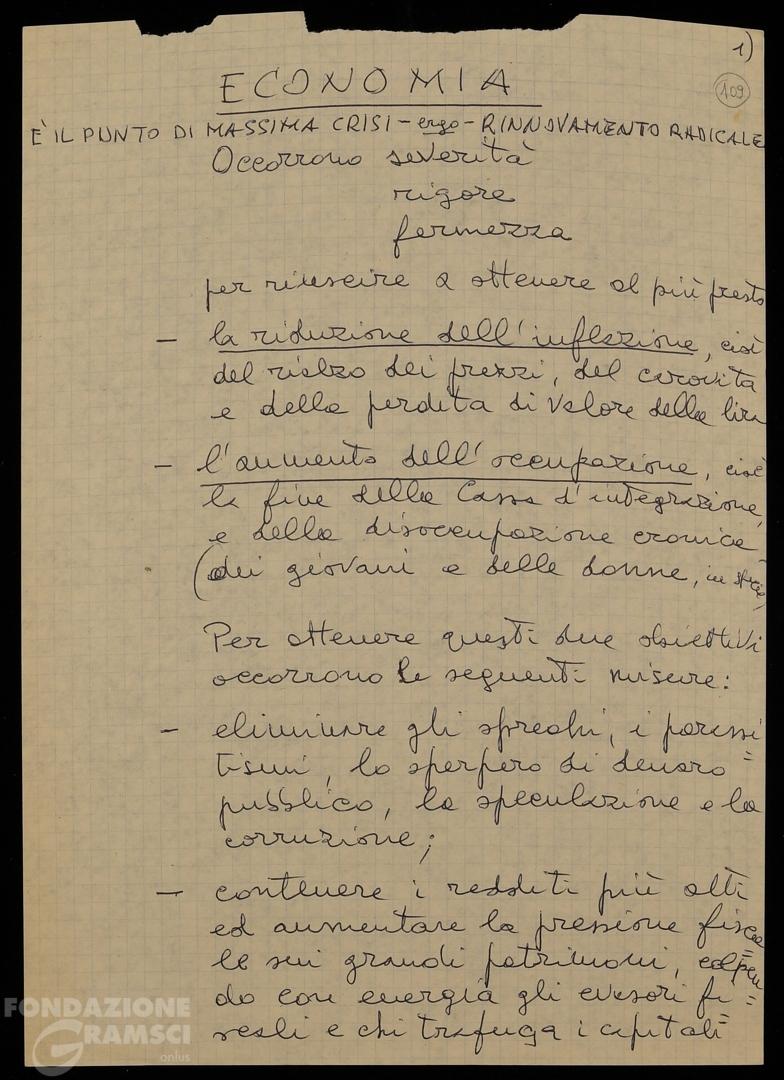 1)
109
ECONOMIA
È IL PUNTO DI MASSIMA CRISI - ergo - RINNOVAMENTO RADICALE
Occorrono severità
rigore
fermezza
per riuscire a ottenere al più presto
- la riduzione dell'inflazione, cioè
del rialzo dei prezzi, del carovita
e della perdita di valore della lira
- l'aumento dell'occupazione, cioè
la fine della Cassa d'integrazione
e della disoccupazione cronica
(dei giovani e delle donne, in specie)
Per ottenere questi due obiettivi
occorrono le seguenti misure:
- eliminare gli sprechi, i parassi=
tismi, lo sperpero di denaro
pubblico, la speculazione e la
corruzione;
- contenere i redditi più alti
ed aumentare la pressione fisca=
le sui grandi patrimoni, colpen=
do con energia gli evasori fi=
scali e chi trafuga i capitali
FONDAZIONE
GRAMSCI
onlus